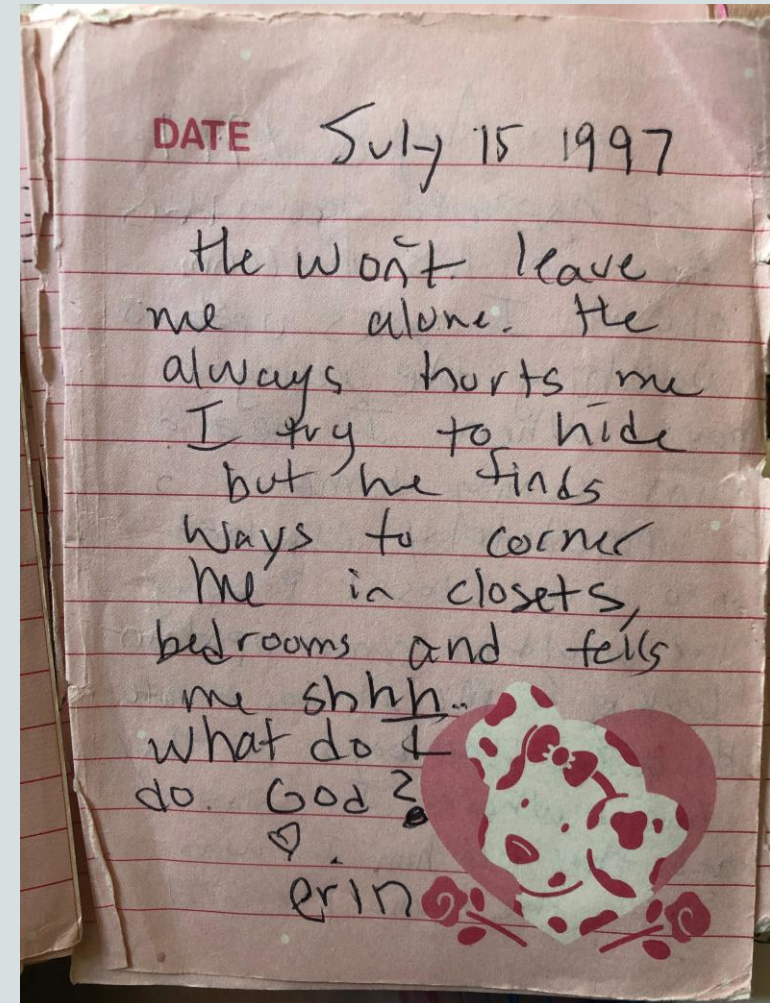 DATE July 15 1997
He won't leave
me alone. He
always hurts me
I try to hide
but he finds
ways to corner
me in closets,
bedrooms and tells
me shhh..
what do I
do. God?
♡
erin